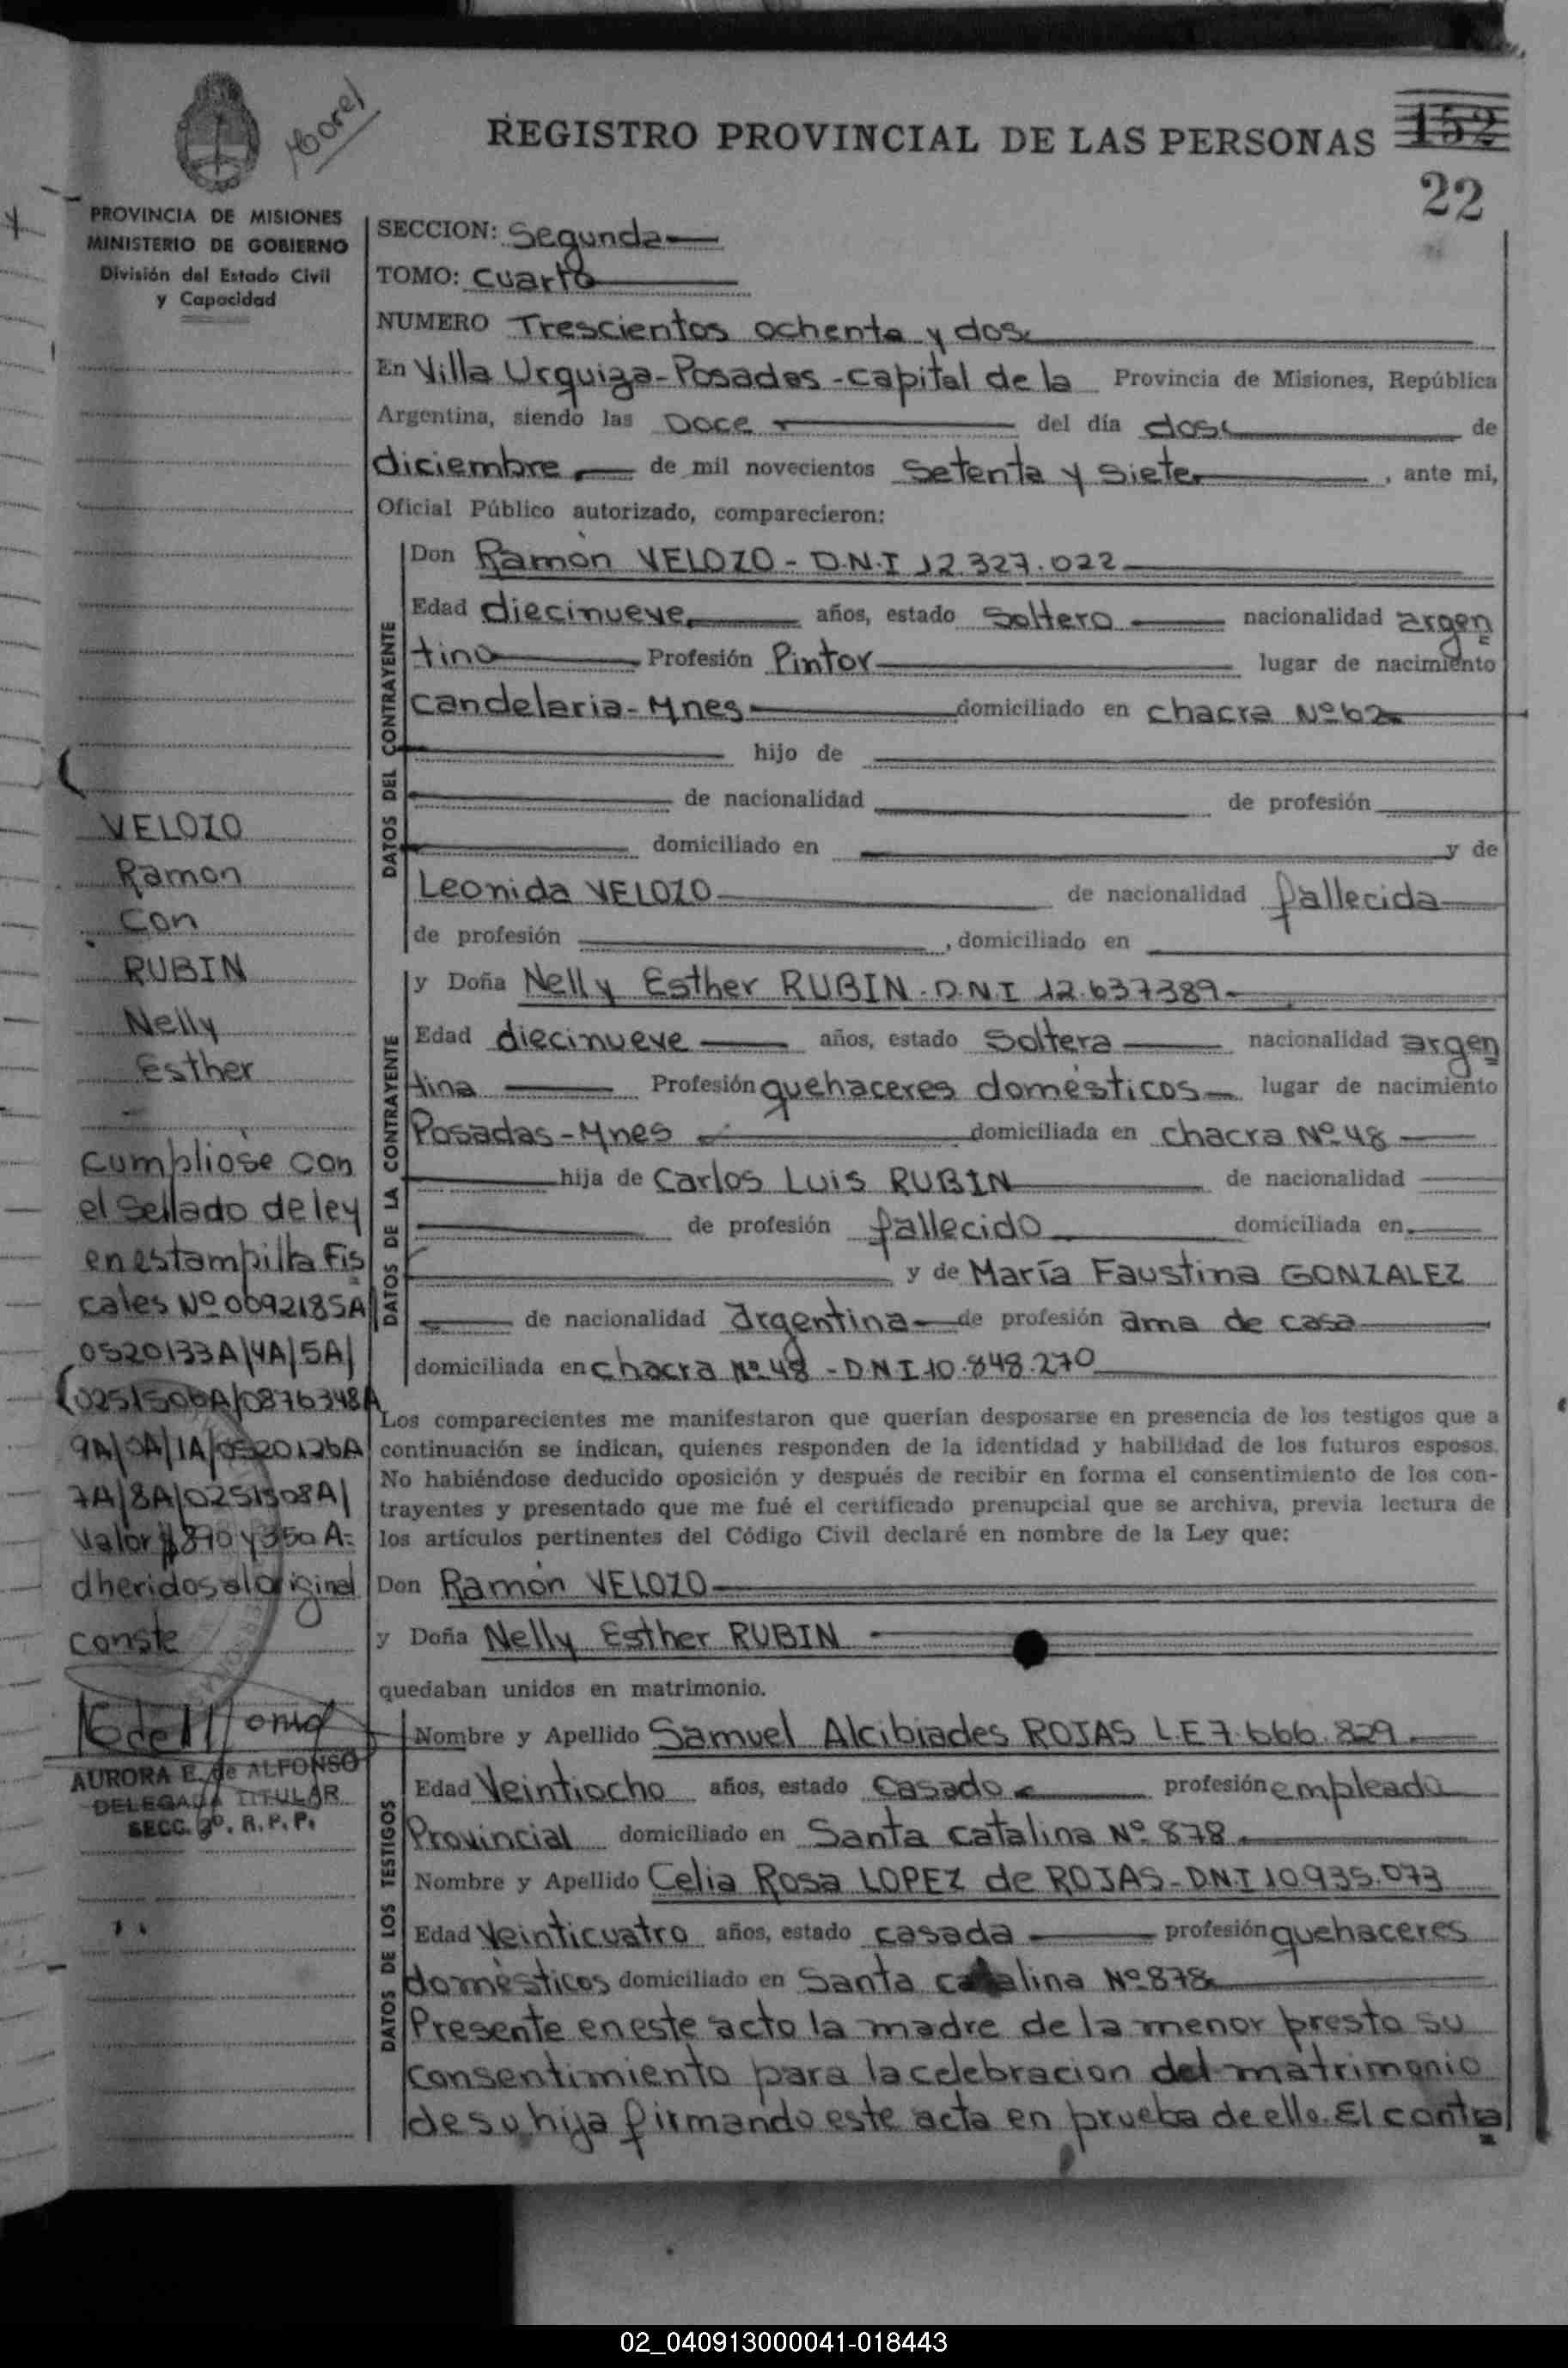 REGISTRO PROVINCIAL DE LAS PERSONAS 152
22
PROVINCIA DE MISIONES
MINISTERIO DE GOBIERNO
División del Estado Civil
y Capacidad
SECCION: Segunda
TOMO: Cuarto
NUMERO Trescientos ochenta y dos
En Villa Urquiza - Posadas - capital de la Provincia de Misiones, República
Argentina, siendo las Doce del día dos de
diciembre de mil novecientos Setenta y Siete, ante mi,
Oficial Público autorizado, comparecieron:
DATOS DEL CONTRAYENTE
Don Ramón VELOZO - D.N.I 12.327.022
Edad diecinueve años, estado Soltero nacionalidad argen
tino Profesión Pintor lugar de nacimiento
candelaria - Mnes domiciliado en chacra Nº 62
hijo de
de nacionalidad de profesión
domiciliado en y de
Leonida VELOZO de nacionalidad fallecida
de profesión , domiciliado en
DATOS DE LA CONTRAYENTE
y Doña Nelly Esther RUBIN - D.N.I 12.637389
Edad diecinueve años, estado Soltera nacionalidad argen
tina Profesión quehaceres domésticos lugar de nacimiento
Posadas - Mnes domiciliada en chacra Nº 48
hija de Carlos Luis RUBIN de nacionalidad
de profesión fallecido domiciliada en
y de María Faustina GONZALEZ
de nacionalidad argentina de profesión ama de casa
domiciliada en chacra Nº 48 - D.N.I 10.848.270
Los comparecientes me manifestaron que querían desposarse en presencia de los testigos que a
continuación se indican, quienes responden de la identidad y habilidad de los futuros esposos.
No habiéndose deducido oposición y después de recibir en forma el consentimiento de los con-
trayentes y presentado que me fué el certificado prenupcial que se archiva, previa lectura de
los artículos pertinentes del Código Civil declaré en nombre de la Ley que:
Don Ramón VELOZO
y Doña Nelly Esther RUBIN
quedaban unidos en matrimonio.
DATOS DE LOS TESTIGOS
Nombre y Apellido Samuel Alcibiades ROJAS L.E 7.666.829
Edad Veintiocho años, estado Casado profesión empleado
Provincial domiciliado en Santa Catalina Nº 878
Nombre y Apellido Celia Rosa LOPEZ de ROJAS - D.N.I 10935.073
Edad Veinticuatro años, estado casada profesión quehaceres
domésticos domiciliado en Santa catalina Nº 878
Presente en este acto la madre de la menor presta su
consentimiento para la celebracion del matrimonio
de su hija firmando este acta en prueba de ello. El contra
VELOZO
Ramon
Con
RUBIN
Nelly
Esther
Cumpliose con
el Sellado de ley
en estampilla Fis
cales Nº 0692185A
0520133A/4A/5A/
0251506A/0876348A
9A/0A/1A/0520126A
7A/8A/0251508A/
Valor $ 890 y 350 A=
dheridos al original
conste
AURORA E. de ALFONSO
DELEGADA TITULAR
SECC. 2º. R. P. P.
02_040913000041-018443